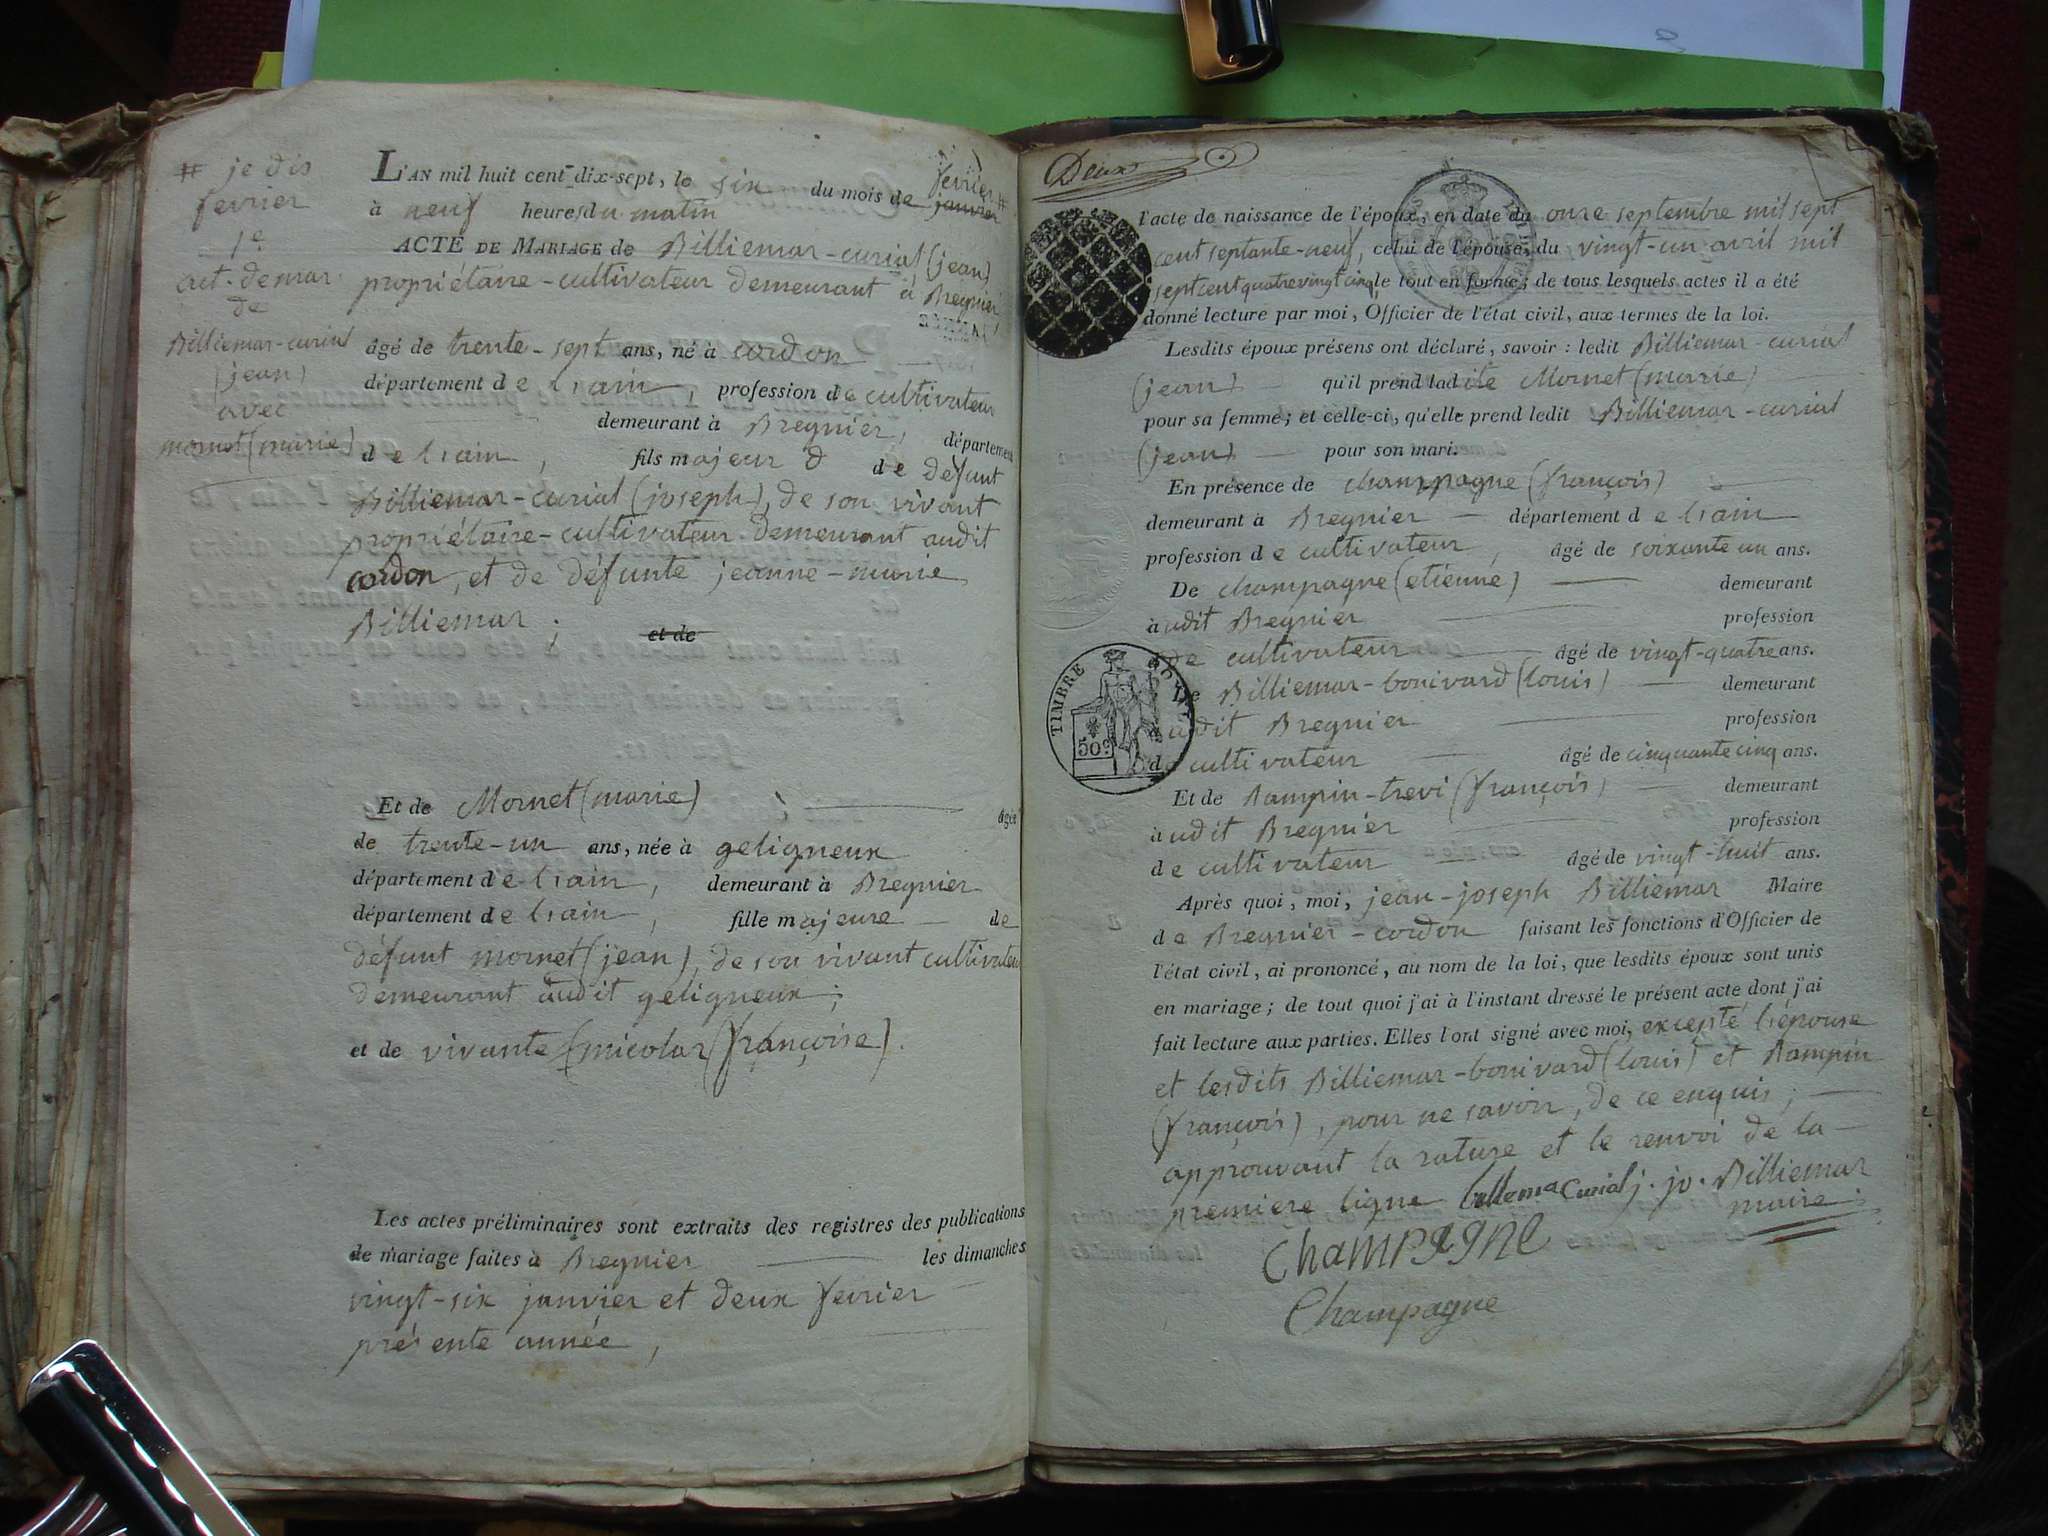 # je dis
fevrier
1e
act. de mar.
de
Billiemaz-curial
(jean)
avec
mornet (marie)
L'AN mil huit cent dix-sept, le six du mois de janvier fevrier #
à neuf heures du matin
ACTE DE MARIAGE de Billiemaz-curial (jean)
propriétaire-cultivateur demeurant à Bregnier
âgé de trente-sept ans, né à cordon
département de l'ain, profession de cultivateur
demeurant à Bregnier, département
de l'ain, fils majeur d de defunt
Billiemaz-curial (joseph), de son vivant
propriétaire-cultivateur demeurant audit
cordon, et de défunte jeanne-marie
Billiemaz;
et de
Et de Mornet (marie) âgée
de trente-un ans, née à geligneux
département de l'ain, demeurant à Bregnier
département de l'ain, fille majeure de
défunt mornet (jean), de son vivant cultivateur
demeurant audit geligneux;
et de vivante (micolaz (françoise).
Les actes préliminaires sont extraits des registres des publications
de mariage faites à Bregnier les dimanches
vingt-six janvier et deux fevrier
présente année,
Deux
l'acte de naissance de l'époux, en date du onze septembre mil sept
cent septante-neuf, celui de l'épouse, du vingt-un avril mil
sept cent quatre vingt cinq, le tout en forme; de tous lesquels actes il a été
donné lecture par moi, Officier de l'état civil, aux termes de la loi.
Lesdits époux présens ont déclaré, savoir: ledit Billiemaz-curial
(jean) qu'il prend ladite Mornet (marie)
pour sa femme; et celle-ci, qu'elle prend ledit Billiemaz-curial
(jean) pour son mari.
En présence de champagne (françois)
demeurant à Bregnier département de l'ain
profession de cultivateur, âgé de soixante un ans.
De champagne (etienne) demeurant
audit Bregnier profession
de cultivateur âgé de vingt-quatre ans.
De Billiemaz-bonivard (louis) demeurant
audit Bregnier profession
TIMBRE ROYAL
50c
de cultivateur âgé de cinquante cinq ans.
Et de Rampin-trevi (françois) demeurant
audit Bregnier profession
de cultivateur âgé de vingt-huit ans.
Après quoi, moi, jean-joseph Billiemaz Maire
de Bregnier-cordon faisant les fonctions d'Officier de
l'état civil, ai prononcé, au nom de la loi, que lesdits époux sont unis
en mariage; de tout quoi j'ai à l'instant dressé le présent acte dont j'ai
fait lecture aux parties. Elles l'ont signé avec moi, excepté l'épouse
et lesdits Billiemaz-bonivard (louis) et Rampin
(françois), pour ne savoir, de ce enquis;
approuvant la rature et le renvoi de la
premiere ligne Curial j. jo. Billiemaz
maire
Champagne
Champagne